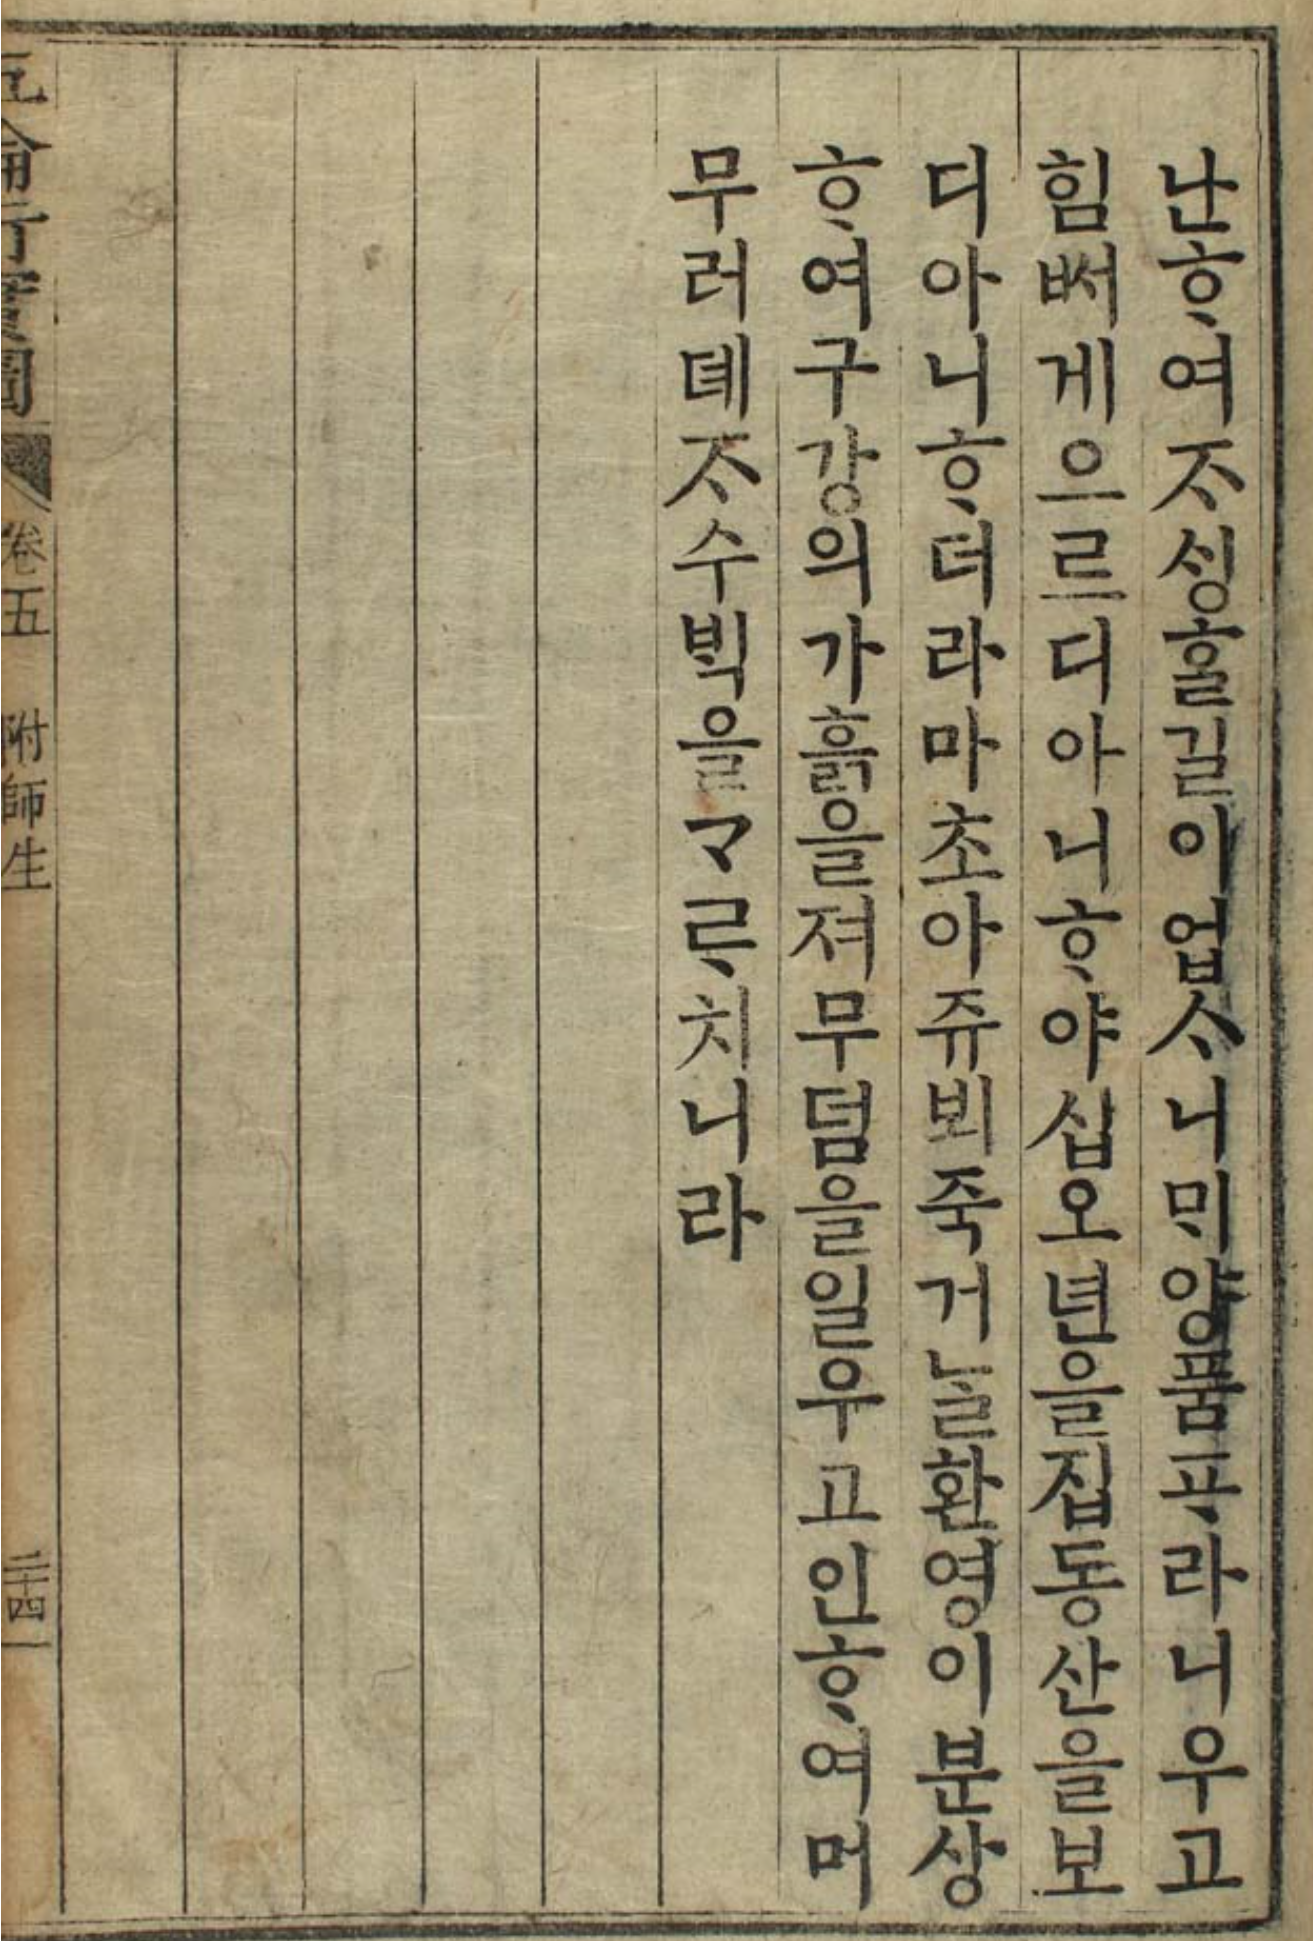 난ᄒᆞ여ᄌᆞ싱홀길이업ᄉᆞ니ᄆᆡ양품ᄑᆞ라니우고
힘ᄡᅥ게으르디아니ᄒᆞ야삽오년을집동산을보
디아니ᄒᆞ더라마초아쥬뵈죽거ᄂᆞᆯ환영이분상
ᄒᆞ여구강의가흙을져무덤을일우고인ᄒᆞ여머
무러톄ᄌᆞ수ᄇᆡᆨ을ᄀᆞᄅᆞ치니라
五倫行實圖 卷五 附師生 三十四